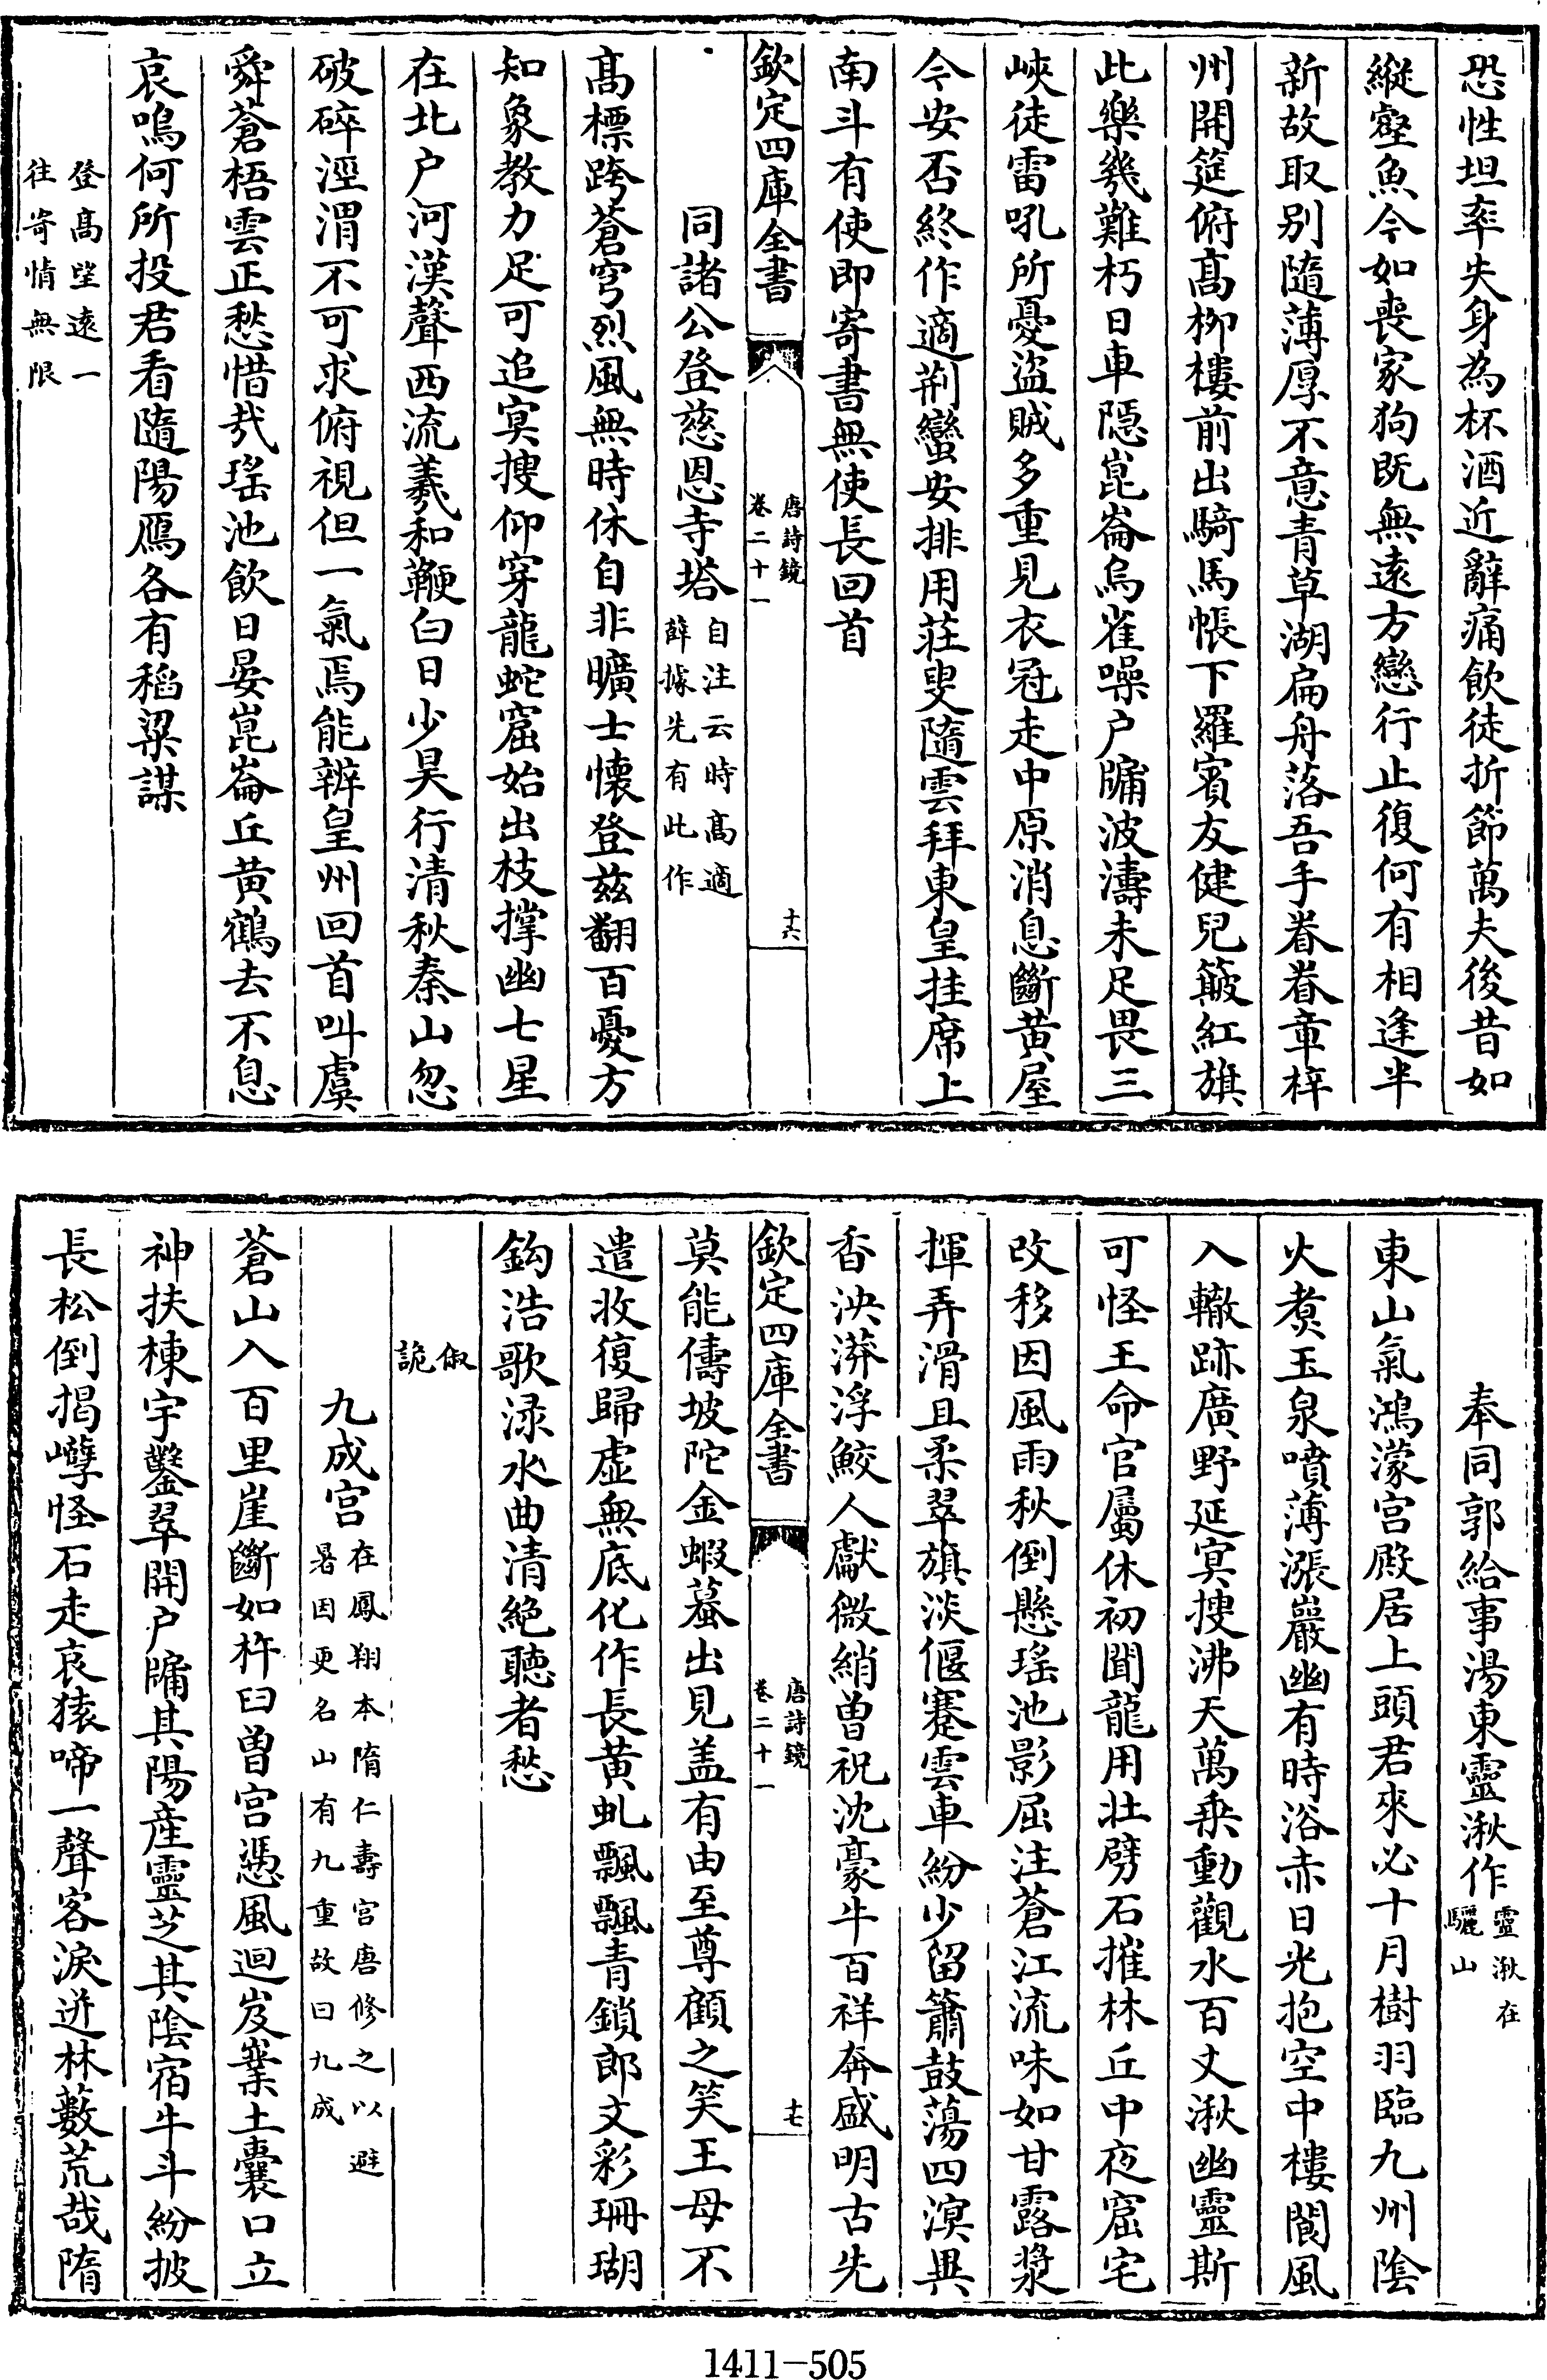 恐性坦率失身為杯酒近辭痛飲徒折節萬夫後昔如
縱壑魚今如喪家狗既無遠方戀行止復何有相逢半
新故取别隨薄厚不意青草湖扁舟落吾手眷眷章梓
州開筵俯髙柳樓前出騎馬帳下羅賓友健兒簸紅旗
此樂幾難朽日車隠崑崙烏雀噪户牖波濤未足畏三
峽徒雷吼所憂盜賊多重見衣冠走中原消息斷黄屋
今安否終作適荆蠻安排用莊叟隨雲拜東皇挂席上
南斗有使即寄書無使長回首
欽定四庫全書
唐詩鏡
卷二十一
十六
同諸公登慈恩寺塔
自注云時髙適
薛據先有此作
髙標跨蒼穹烈風無時休自非曠士懐登兹翻百憂方
知象教力足可追冥搜仰穿龍蛇窟始出枝撑幽七星
在北户河漢聲西流羲和鞭白日少昊行清秋秦山忽
破碎涇渭不可求俯視但一氣焉能辨皇州回首叫虞
舜蒼梧雲正愁惜哉瑤池飲日晏崑崙丘黄鶴去不息
哀鳴何所投君看隨陽鴈各有稻粱謀
登髙望遠一
往寄情無限
奉同郭給事湯東靈湫作
靈湫在
驪山
東山氣鴻濛宮殿居上頭君來必十月樹羽臨九州陰
火煮玉泉噴薄漲巖幽有時浴赤日光抱空中樓閬風
入轍跡廣野延冥搜沸天萬乗動觀水百丈湫幽靈斯
可怪王命官屬休初聞龍用壯劈石摧林丘中夜窟宅
改移因風雨秋倒懸瑤池影屈注蒼江流味如甘露漿
揮弄滑且柔翠旗淡偃蹇雲車紛少留簫鼓蕩四溟異
香泱漭浮鮫人獻微綃曽祝沈豪牛百祥奔盛明古先
欽定四庫全書
唐詩鏡
卷二十一
十七
莫能儔坡陀金蝦蟇出見盖有由至尊顧之笑王母不
遣收復歸虚無底化作長黄虬飄飄青鎖郎文彩珊瑚
鈎浩歌淥水曲清絶聽者愁
俶
詭
九成宮
在鳳翔本隋仁壽宮唐修之以避
暑因更名山有九重故曰九成
蒼山入百里崖斷如杵臼曽宮憑風迴岌嶪土囊口立
神扶棟宇鑿翠開户牖其陽産靈芝其陰宿牛斗紛披
長松倒揭㠥怪石走哀猿啼一聲客淚迸林藪荒哉隋
1411-505